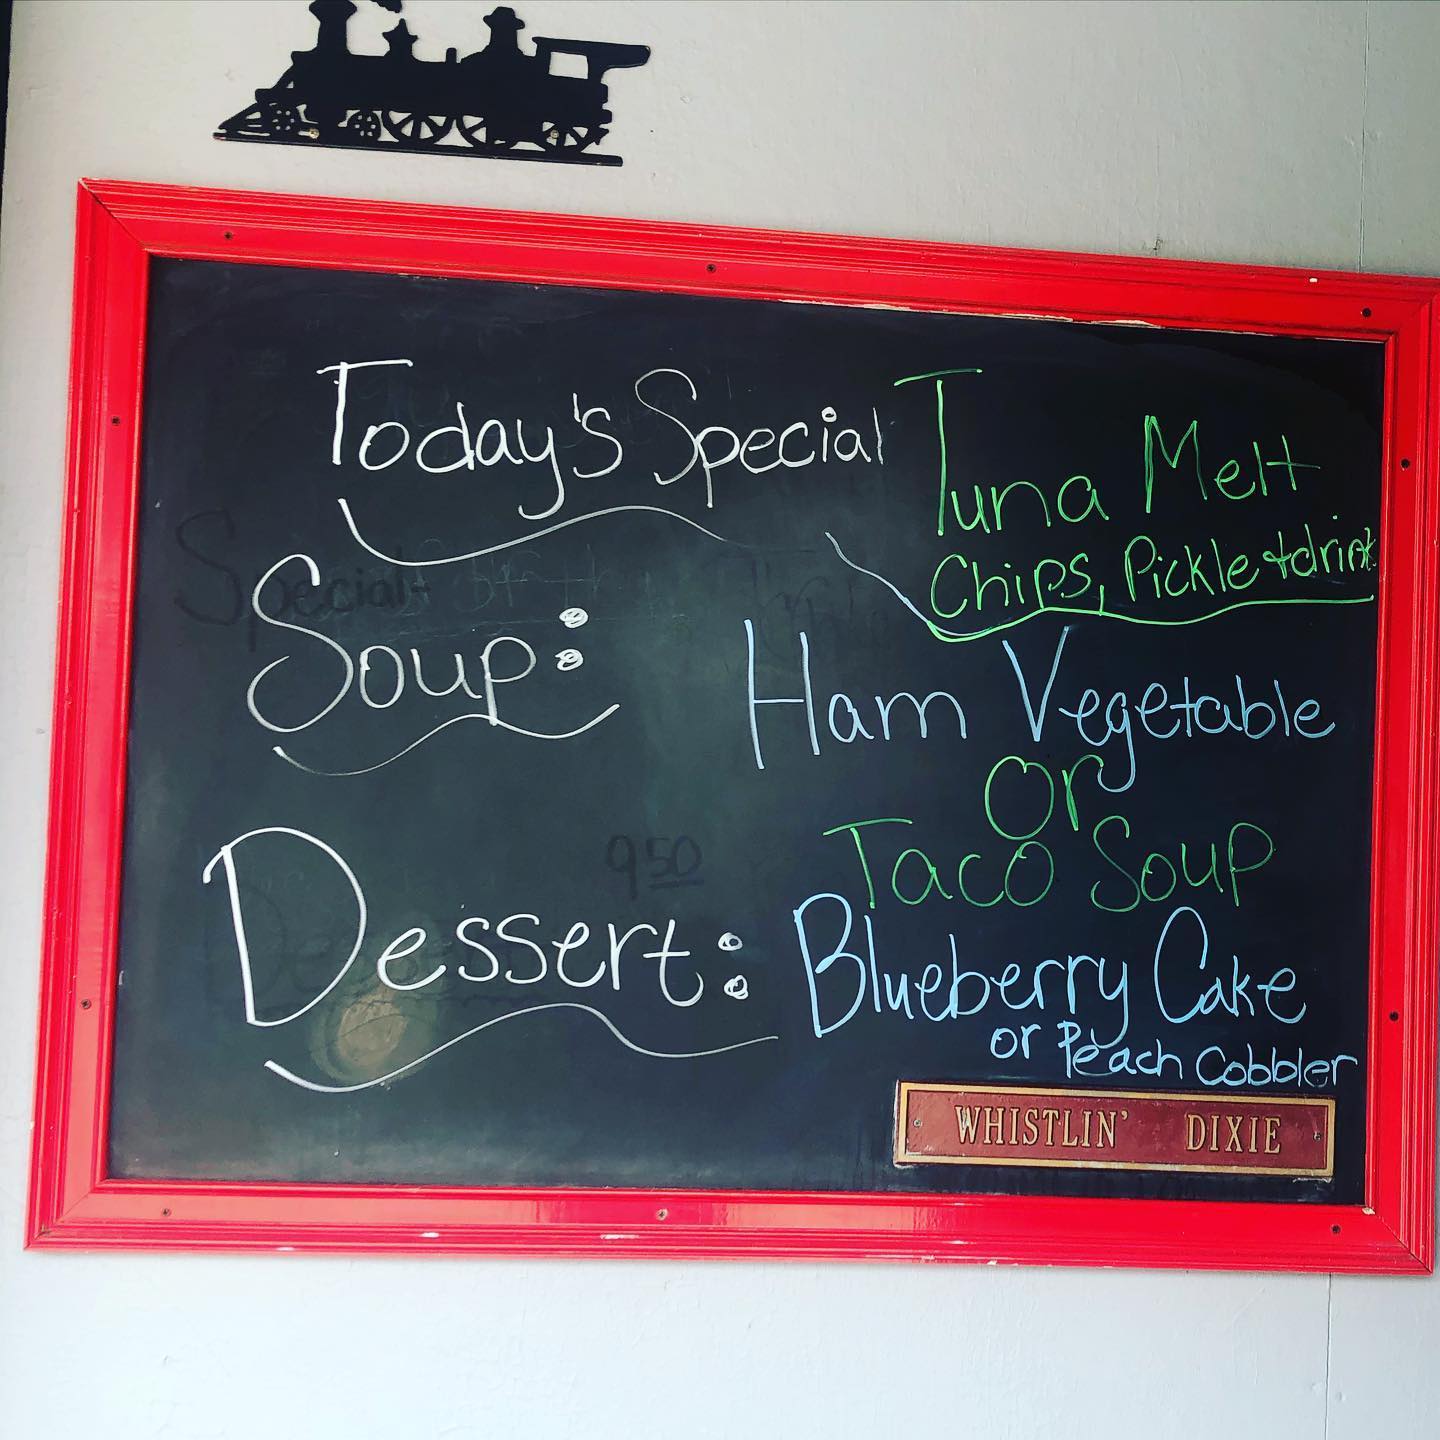 Today's Special Tuna Melt
Chips, Pickle + drink
Special-
Soup: Ham Vegetable
Or
Taco Soup
9 50
Dessert: Blueberry Cake
or Peach Cobbler
WHISTLIN' DIXIE